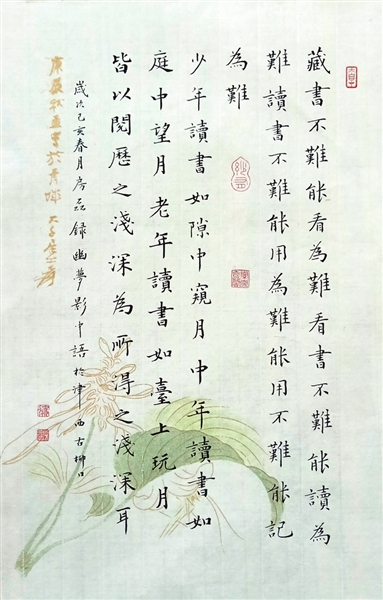 藏書不難能看為難看書不難能讀為
難讀書不難能用為難能用不難能記
為難
少年讀書如隙中窺月中年讀書如
庭中望月老年讀書如臺上玩月
皆以閱歷之淺深為所得之淺深耳
歲次己亥春月房磊錄幽夢影中語於津西古柳口